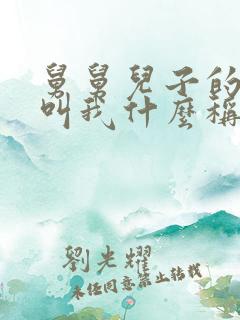 舅舅兒子的
叫我什麼稱
劉光耀
未經同意禁止轉載